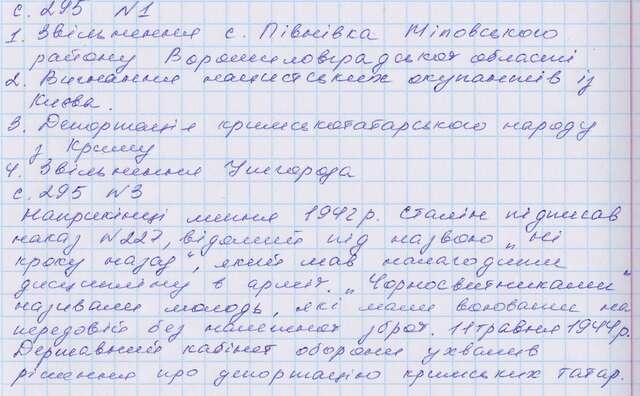 с. 295 N1
1. Звільнення с. Півнівка Міловського
району Ворошиловградської області
2. Вигнання нацистських окупантів із
Києва.
3. Депортація кримськотатарського народу
з Криму
4. Звільнення Ужгорода
с. 295 N3
Наприкінці липня 1942 р. Сталін підписав
наказ N227, відомий під назвою „Ні
кроку назад“, який мав налагодити
дисципліну в армії. „Чорносвитниками“
називали молодь, які мали воювати на
передовій без належної зброї. 11 травня 1944 р.
Державний кабінет оборони ухвалив
рішення про депортацію кримських татар.